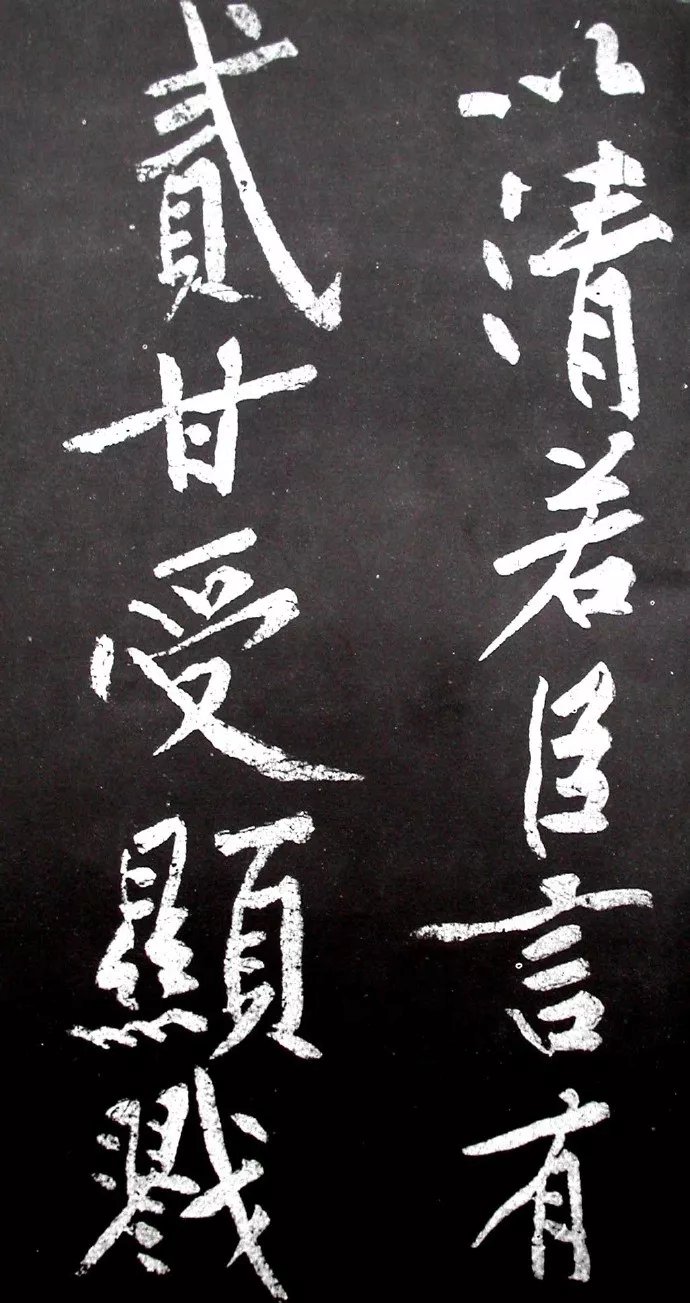 以清若臣言有
貳甘受顯戮